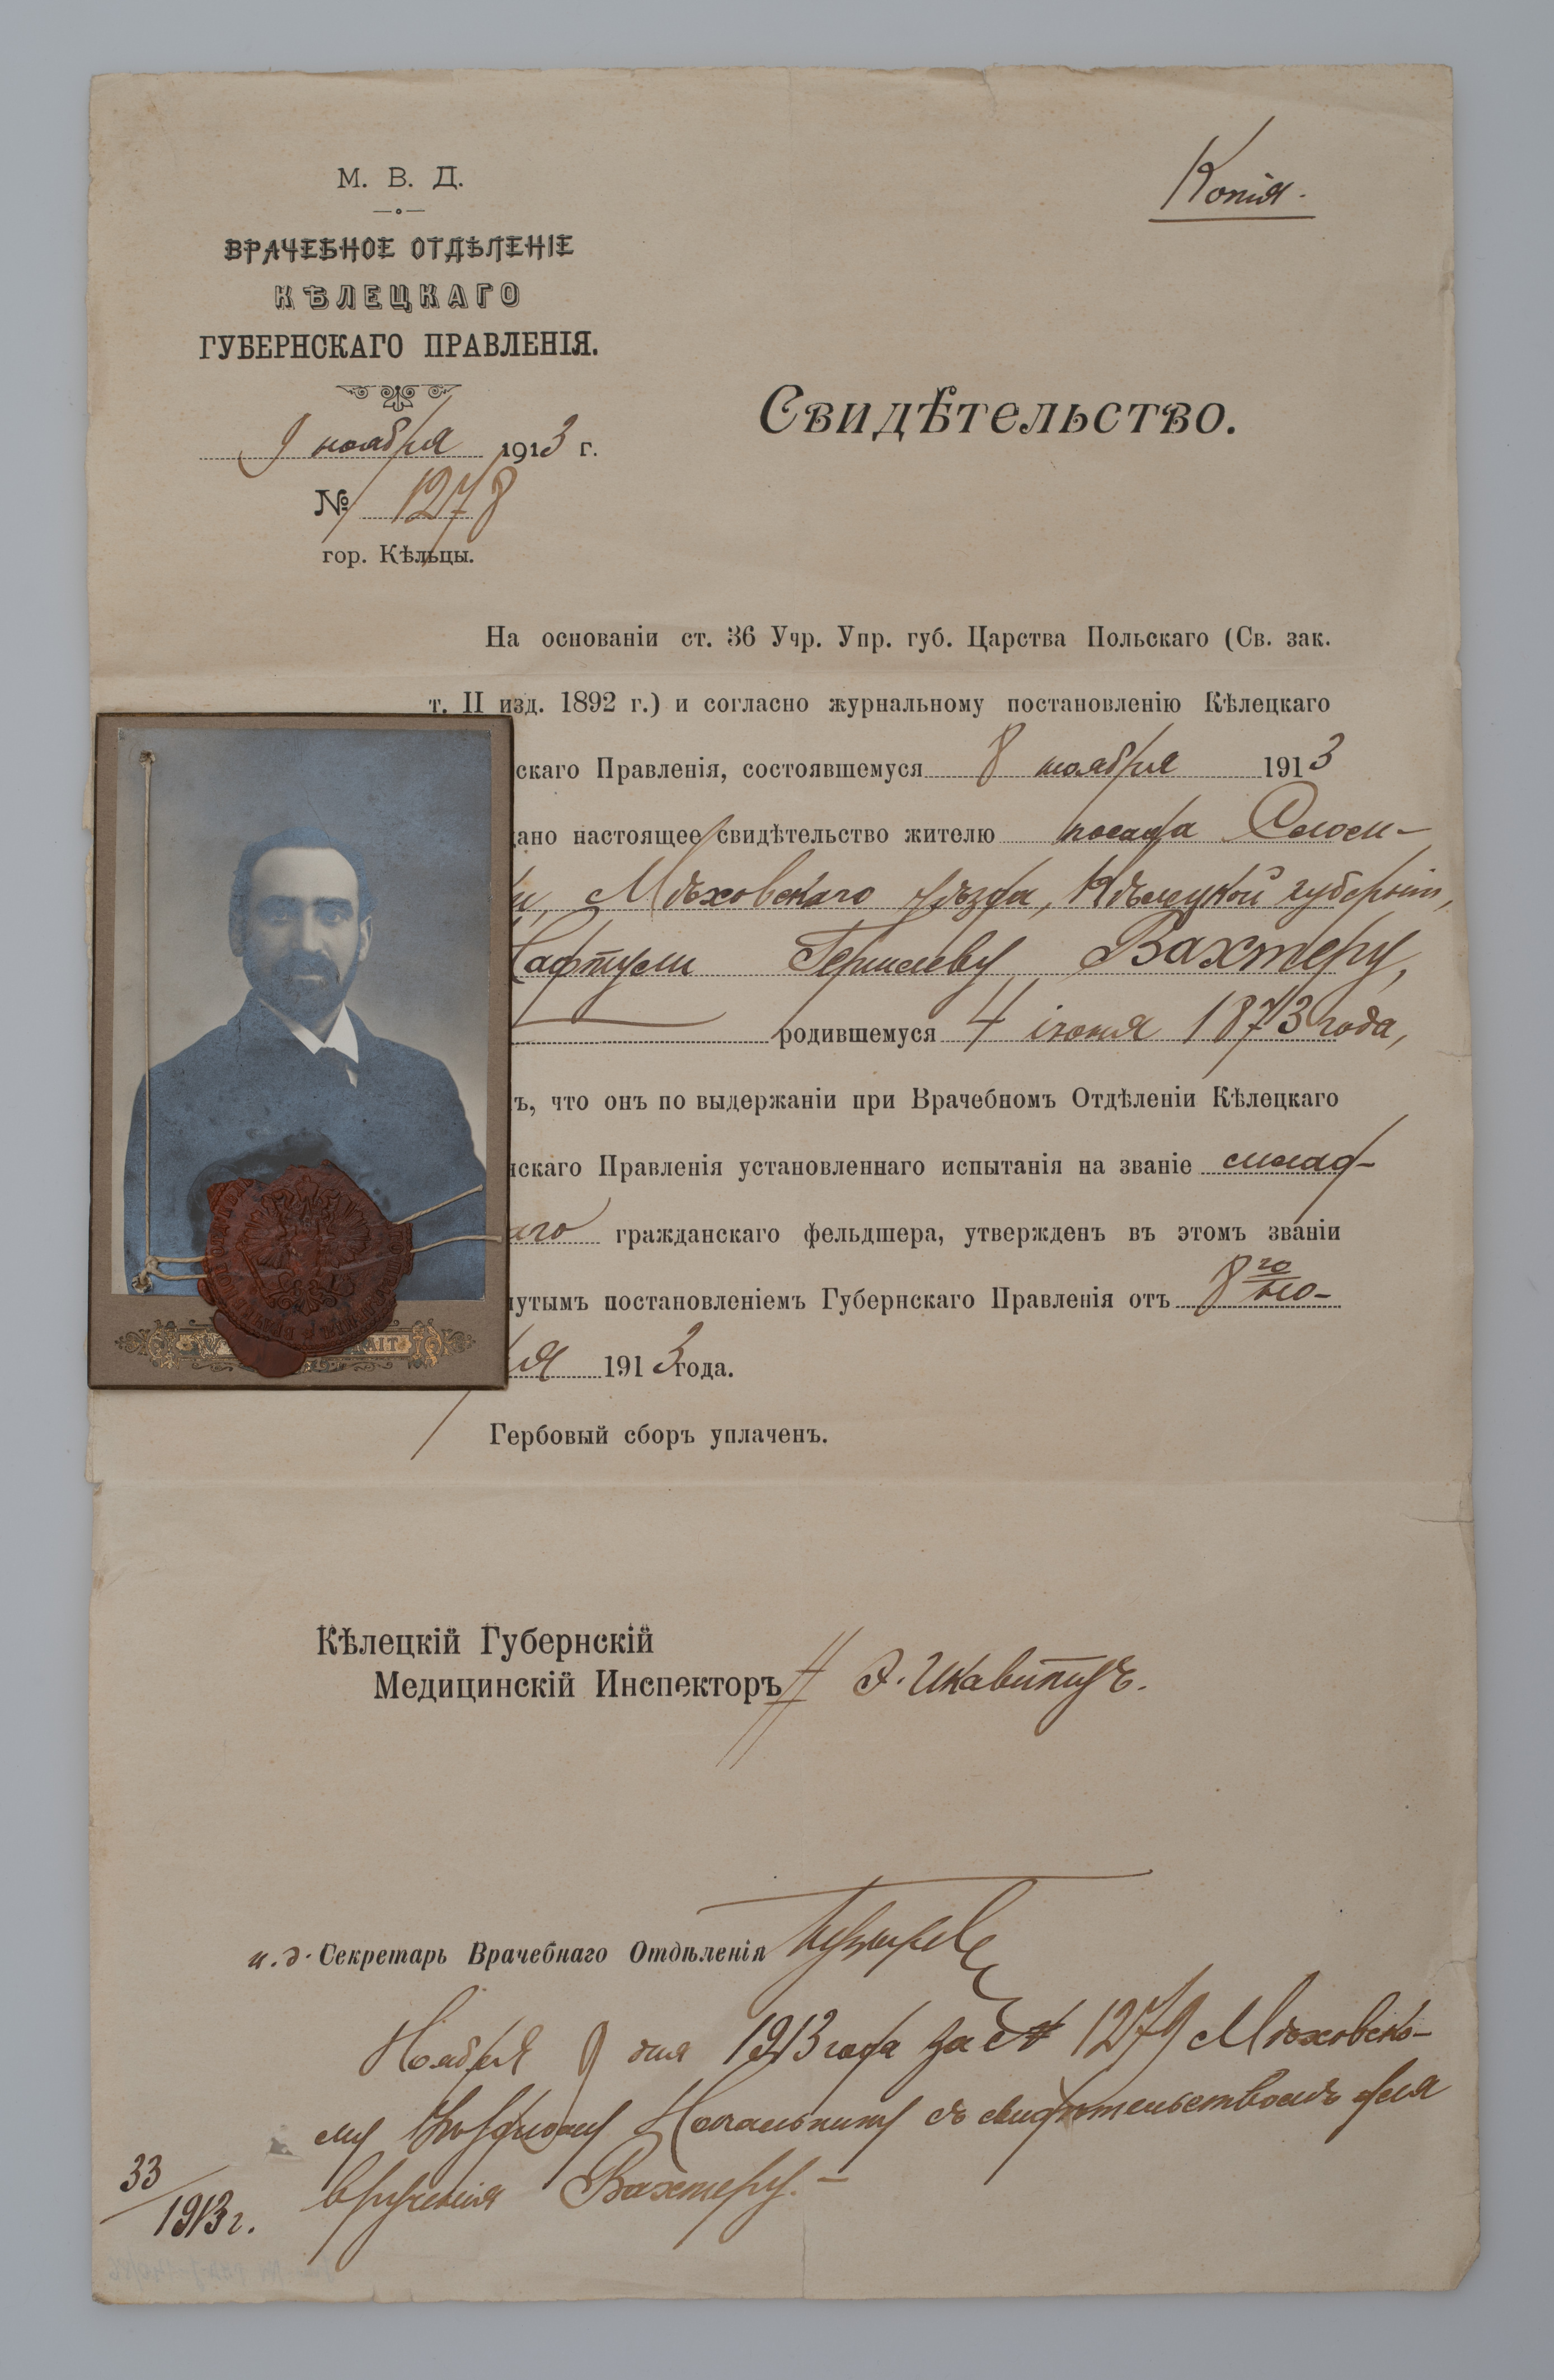 Копія.
М. В. Д.
ВРАЧЕБНОЕ ОТДѢЛЕНІЕ
КѢЛЕЦКАГО
ГУБЕРНСКАГО ПРАВЛЕНІЯ.
9 ноября 1913 г.
№ 1278
гор. Кѣльцы.
Свидѣтельство.
На основаніи ст. 36 Учр. Упр. губ. Царства Польскаго (Св. зак.
т. II изд. 1892 г.) и согласно журнальному постановленію Кѣлецкаго
скаго Правленія, состоявшемуся 8 ноября 1913
дано настоящее свидѣтельство жителю посада Слом-
ки, Мѣховскаго уѣзда, Кѣлецкой губерніи,
Нафтули Гершлеву Вахтеру,
родившемуся 4 іюня 1873 года,
ъ, что онъ по выдержаніи при Врачебномъ Отдѣленіи Кѣлецкаго
нскаго Правленія установленнаго испытанія на званіе млад-
аго гражданскаго фельдшера, утвержденъ въ этомъ званіи
нутымъ постановленіемъ Губернскаго Правленія отъ 8го но-
ля 1913 года.
Гербовый сборъ уплаченъ.
Кѣлецкій Губернскій
Медицинскій Инспекторъ
и. д. Секретарь Врачебнаго Отдѣленія
Ноября 9 дня 1913 года за № 1279 Мѣховско-
му Уѣздному Начальнику съ свидѣтельствомъ для
врученія Вахтеру. –
33/1913 г.